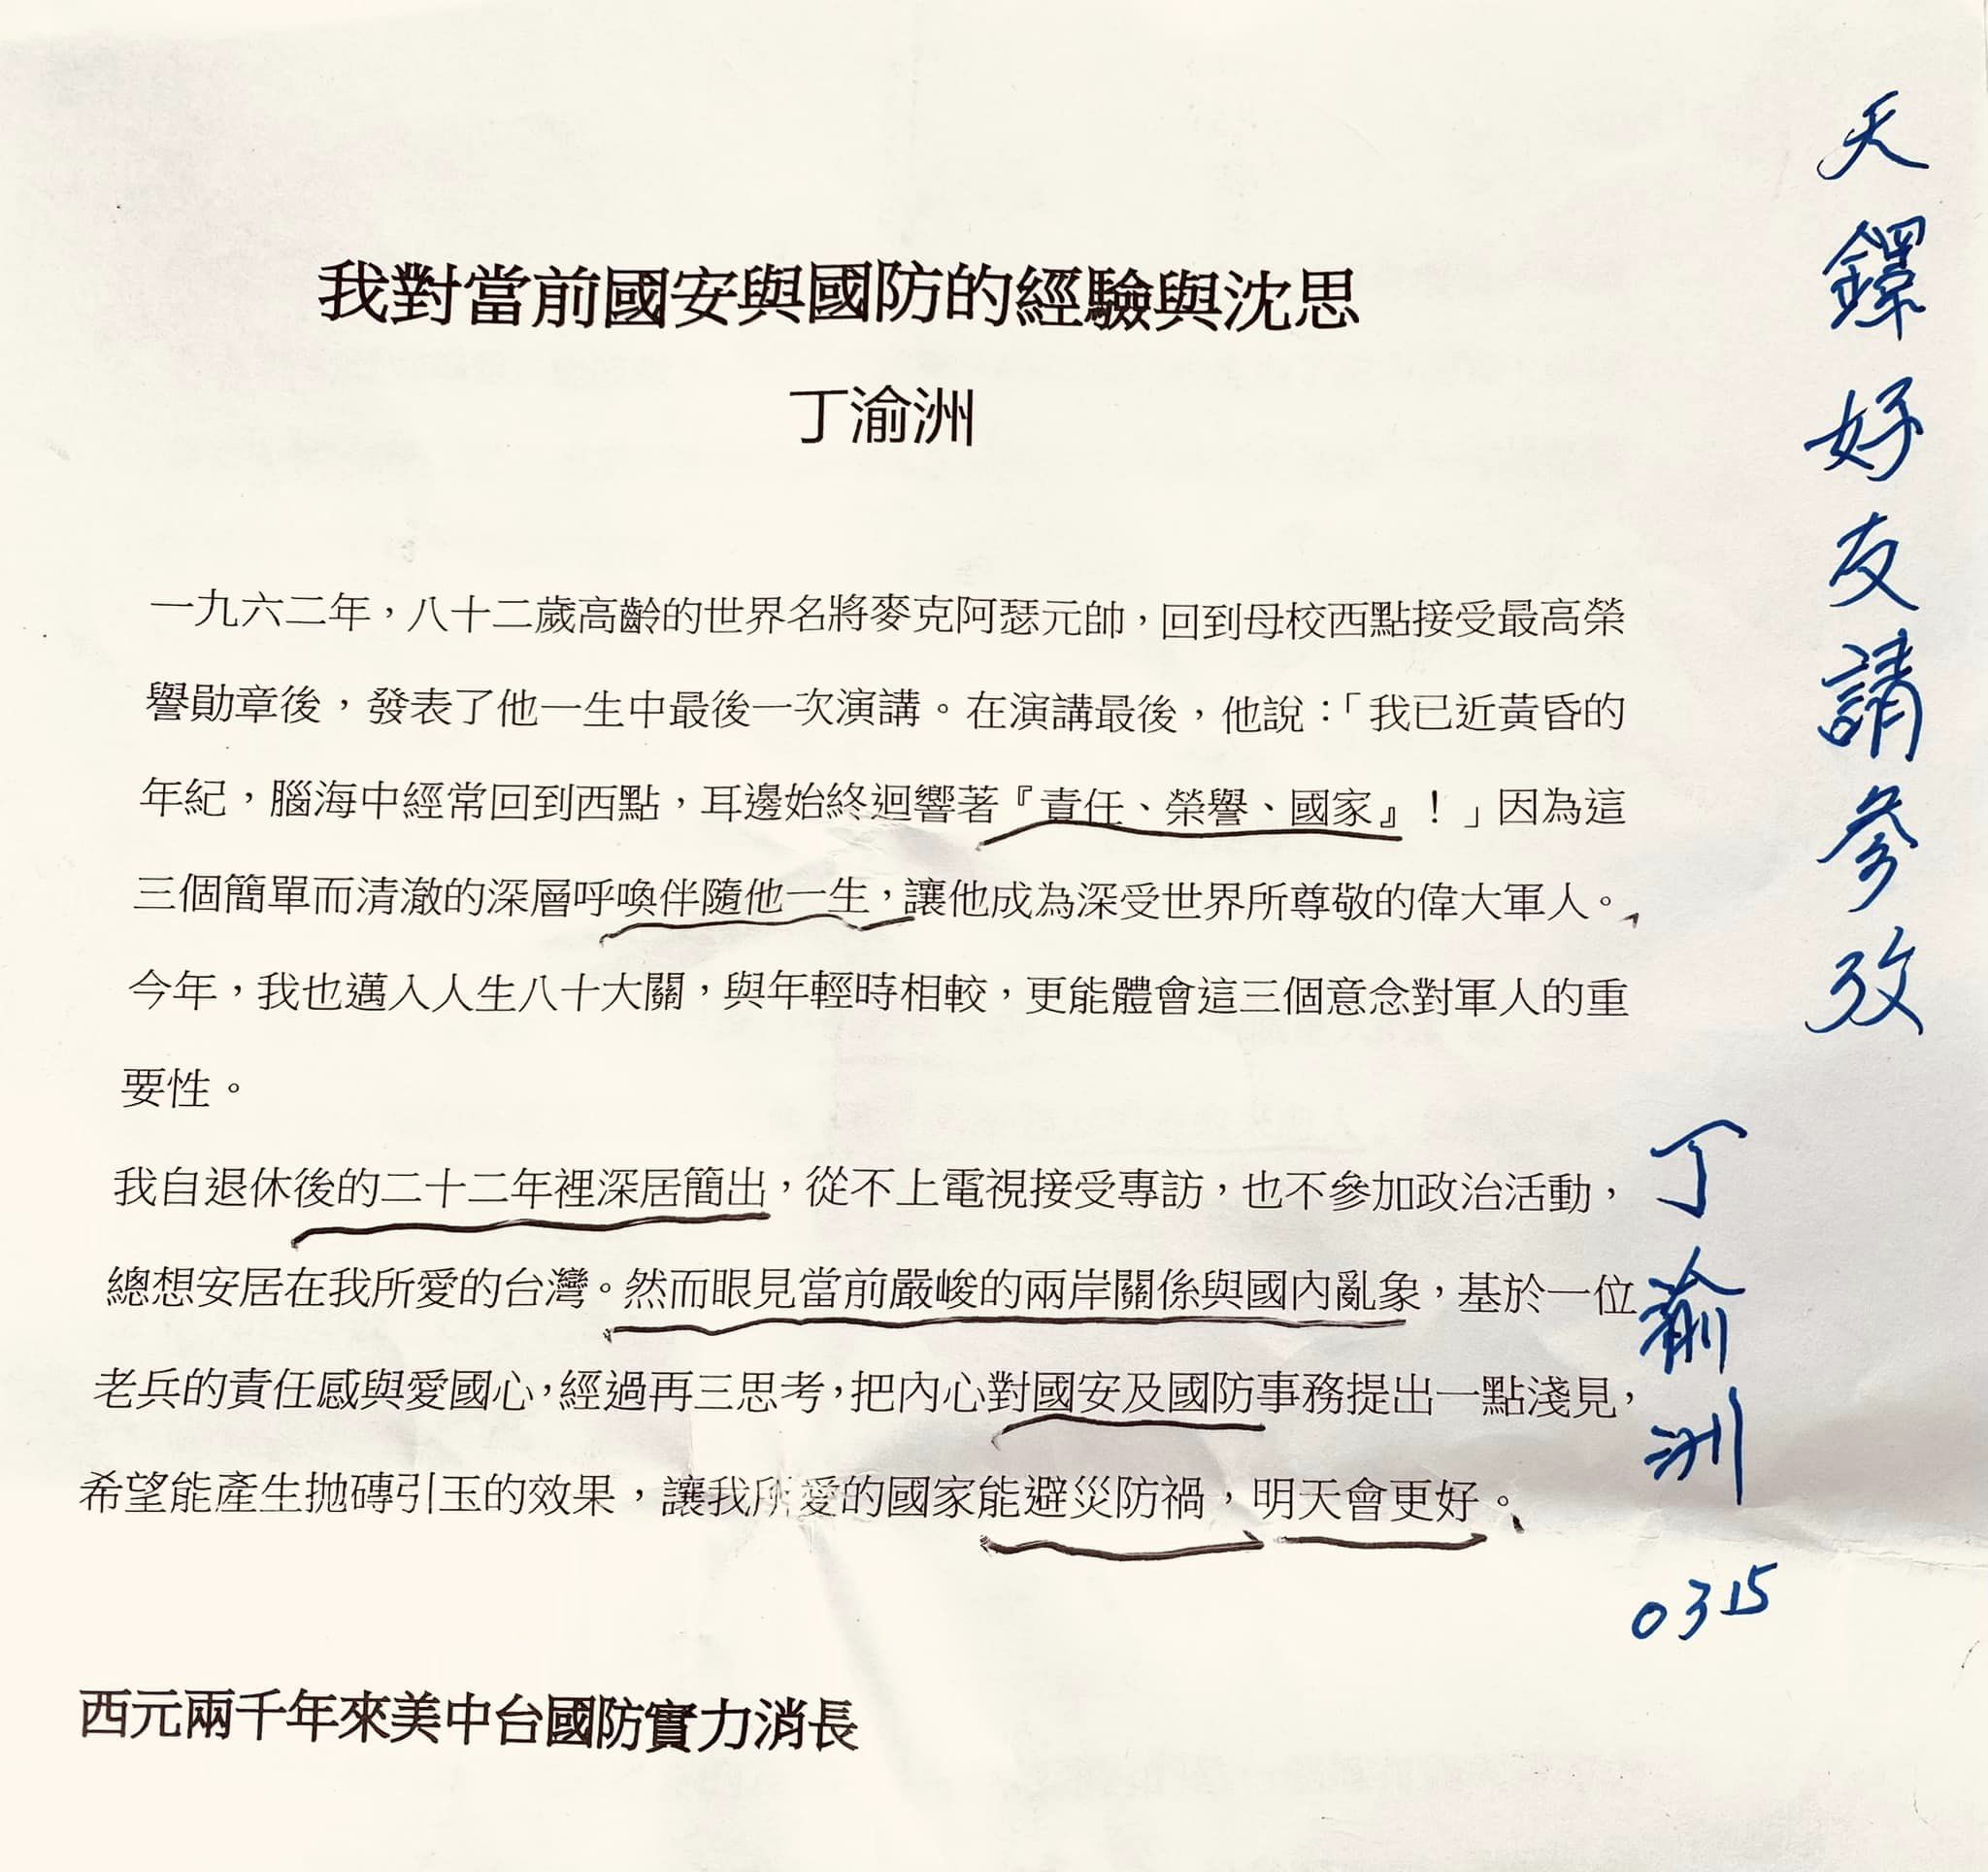 我對當前國安與國防的經驗與沈思
丁渝洲
一九六二年，八十二歲高齡的世界名將麥克阿瑟元帥，回到母校西點接受最高榮
譽勛章後，發表了他一生中最後一次演講。在演講最後，他說：「我已近黃昏的
年紀，腦海中經常回到西點，耳邊始終迴響著『責任、榮譽、國家』！」因為這
三個簡單而清澈的深層呼喚伴隨他一生，讓他成為深受世界所尊敬的偉大軍人。
今年，我也邁入人生八十大關，與年輕時相較，更能體會這三個意念對軍人的重
要性。
我自退休後的二十二年裡深居簡出，從不上電視接受專訪，也不參加政治活動，
總想安居在我所愛的台灣。然而眼見當前嚴峻的兩岸關係與國內亂象，基於一位
老兵的責任感與愛國心，經過再三思考，把內心對國安及國防事務提出一點淺見，
希望能產生拋磚引玉的效果，讓我所愛的國家能避災防禍，明天會更好。
西元兩千年來美中台國防實力消長
天鐸好友請參攷
丁渝洲
0315